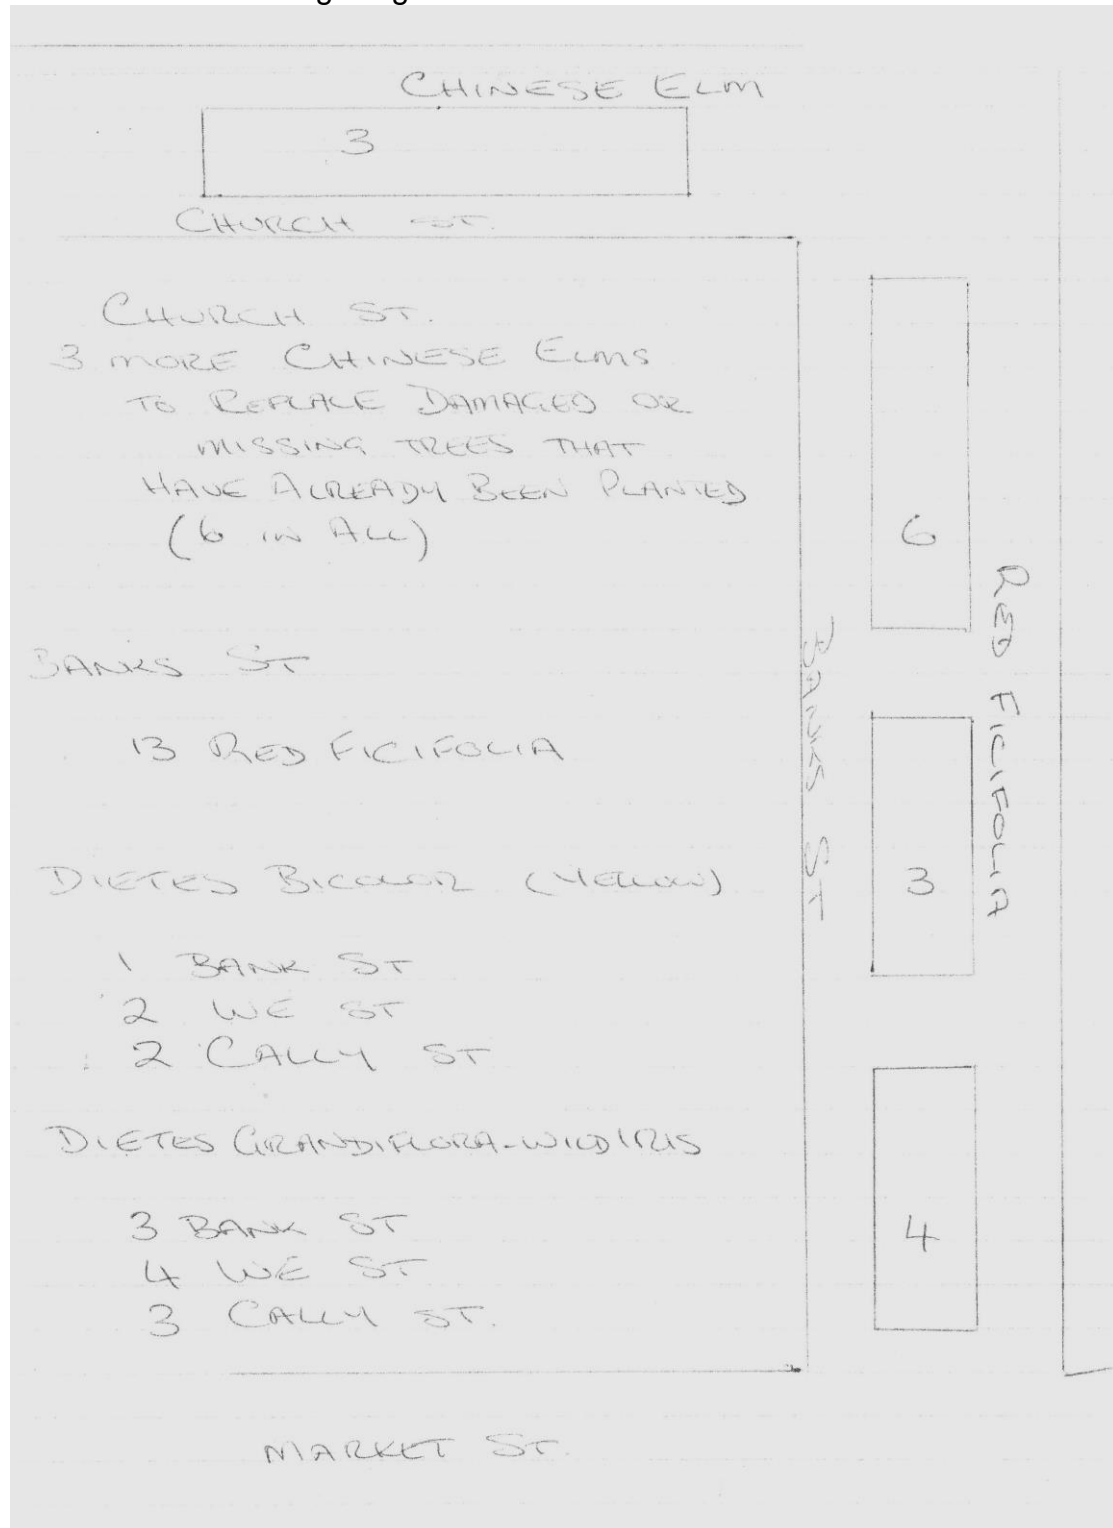 CHINESE ELM
3
CHURCH ST.
CHURCH ST.
3 MORE CHINESE ELMS
TO REPLACE DAMAGED OR
MISSING TREES THAT
HAVE ALREADY BEEN PLANTED
(6 IN ALL)
6
RED FICIFOLIA
BANKS ST
BANKS ST
13 RED FICIFOLIA
3
DIETES BICOLOR (YELLOW)
1 BANK ST
2 WE ST
2 CALLY ST
DIETES GRANDIFLORA-WILD IRIS
3 BANK ST
4 WE ST
3 CALLY ST.
4
MARKET ST.